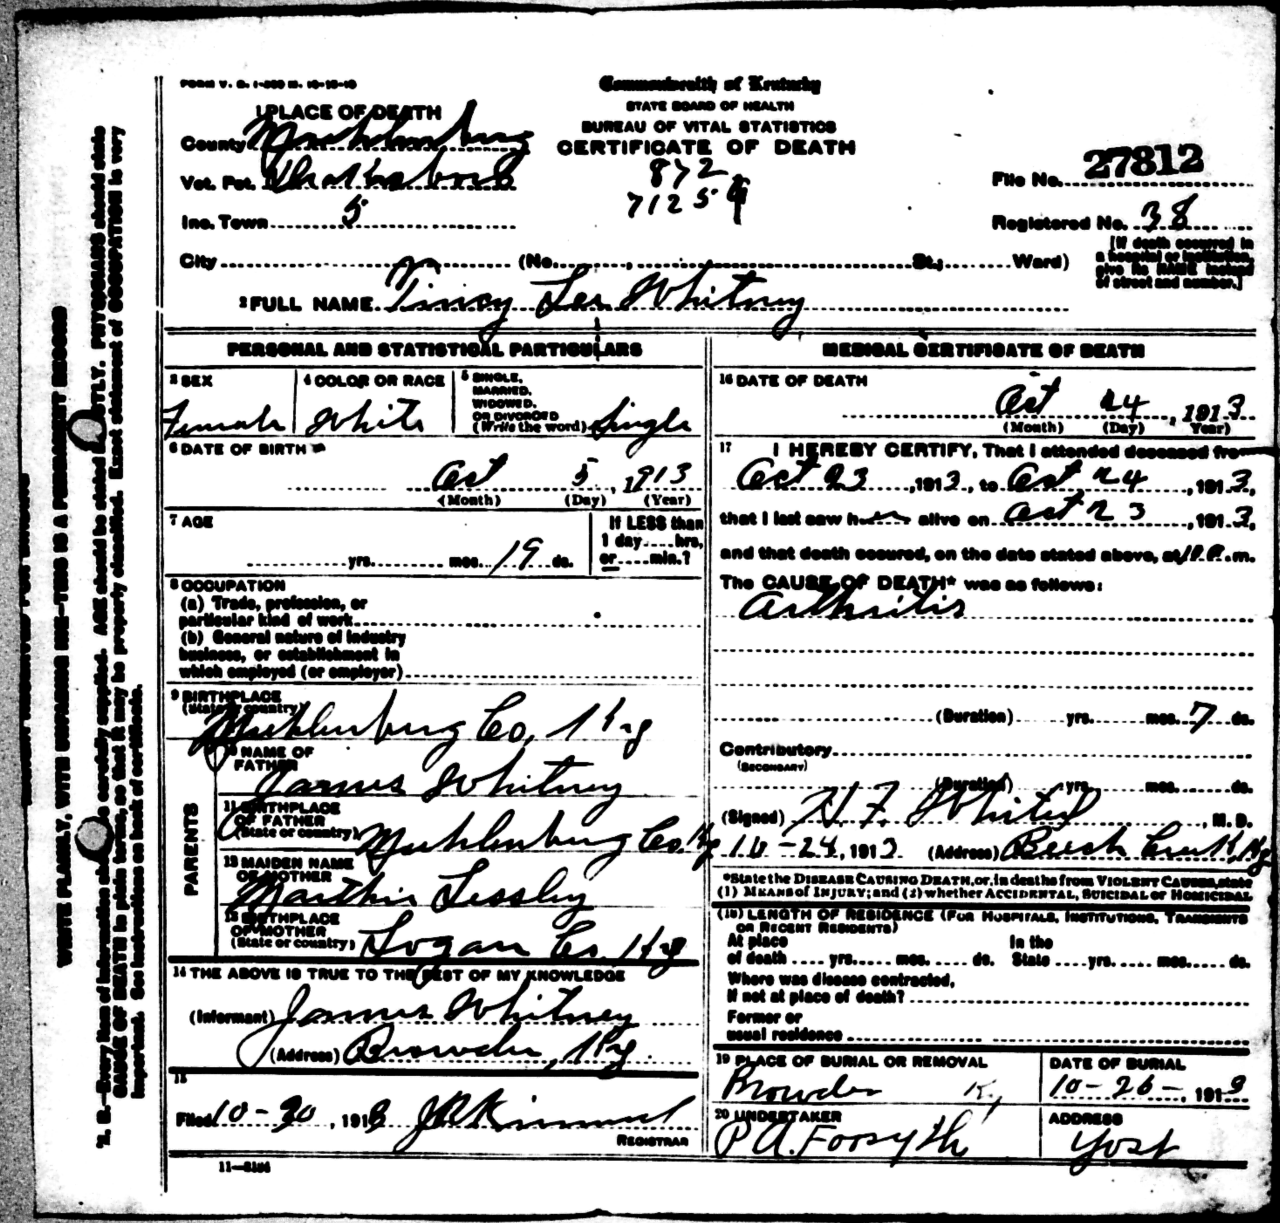 FORM V. S. 1-200 M. 10-10-10
Commonwealth of Kentucky
STATE BOARD OF HEALTH
BUREAU OF VITAL STATISTICS
CERTIFICATE OF DEATH
1 PLACE OF DEATH
County Muhlenburg
Vot. Pct.
Inc. Town 5
872
7125
File No. 27812
Registered No. 38
City (No. , St.; Ward)
[If death occurred in
a hospital or institution,
give its NAME instead
of street and number.]
2 FULL NAME Tincy Lee Whitney
PERSONAL AND STATISTICAL PARTICULARS
3 SEX
Female
4 COLOR OR RACE
White
5 SINGLE,
MARRIED,
WIDOWED,
OR DIVORCED
(Write the word) Single
6 DATE OF BIRTH
Oct 5, 1913
(Month) (Day) (Year)
7 AGE
yrs. mos. 19 ds.
If LESS than
1 day....hrs,
or.....min.?
8 OCCUPATION
(a) Trade, profession, or
particular kind of work
(b) General nature of industry
business, or establishment in
which employed (or employer)
9 BIRTHPLACE
(State or country)
Muhlenburg Co, Ky
PARENTS
10 NAME OF
FATHER
James Whitney
11 BIRTHPLACE
OF FATHER
(State or country) Muhlenburg Co. Ky
12 MAIDEN NAME
OF MOTHER
Marthie Lessley
13 BIRTHPLACE
OF MOTHER
(State or country) Logan Co Ky
14 THE ABOVE IS TRUE TO THE BEST OF MY KNOWLEDGE
(Informant) James Whitney
(Address) Browder, Ky.
15
Filed 10-30, 1913 J A Kimmel
REGISTRAR
11-3184
MEDICAL CERTIFICATE OF DEATH
16 DATE OF DEATH
Oct 24, 1913
(Month) (Day) (Year)
17 I HEREBY CERTIFY, That I attended deceased from
Oct 23, 1913, to Oct 24, 1913,
that I last saw her alive on Oct 23, 1913,
and that death occured, on the date stated above, at m.
The CAUSE OF DEATH* was as follows:
Arthritis
(Duration) yrs. mos. 7 ds.
Contributory
(SECONDARY)
(Duration) yrs. mos. ds.
(Signed) H. F. , M. D.
10-24, 1913 (Address) Beech Creek, Ky
*State the DISEASE CAUSING DEATH, or, in deaths from VIOLENT CAUSES, state
(1) MEANS of INJURY; and (2) whether ACCIDENTAL, SUICIDAL or HOMICIDAL
(18) LENGTH OF RESIDENCE (FOR HOSPITALS, INSTITUTIONS, TRANSIENTS
OR RECENT RESIDENTS)
At place
of death .... yrs. .... mos. .... ds.
In the
State .... yrs. .... mos. .... ds.
Where was disease contracted,
If not at place of death?
Former or
usual residence
19 PLACE OF BURIAL OR REMOVAL
Browder Ky
DATE OF BURIAL
10-26-, 1913
20 UNDERTAKER
P A. Forsythe
ADDRESS
Yost
WRITE PLAINLY, WITH UNFADING INK—THIS IS A PERMANENT RECORD
N. B.—Every item of information should be carefully supplied. AGE should be stated EXACTLY. PHYSICIANS should state
CAUSE OF DEATH in plain terms, so that it may be properly classified. Exact statement of OCCUPATION is very
important. See instructions on back of certificate.